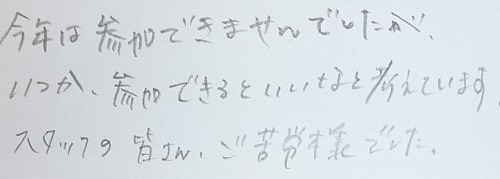 今年は参加できませんでしたが、
いつか、参加できるといいなと考えています
スタッフの皆さん、ご苦労様でした。